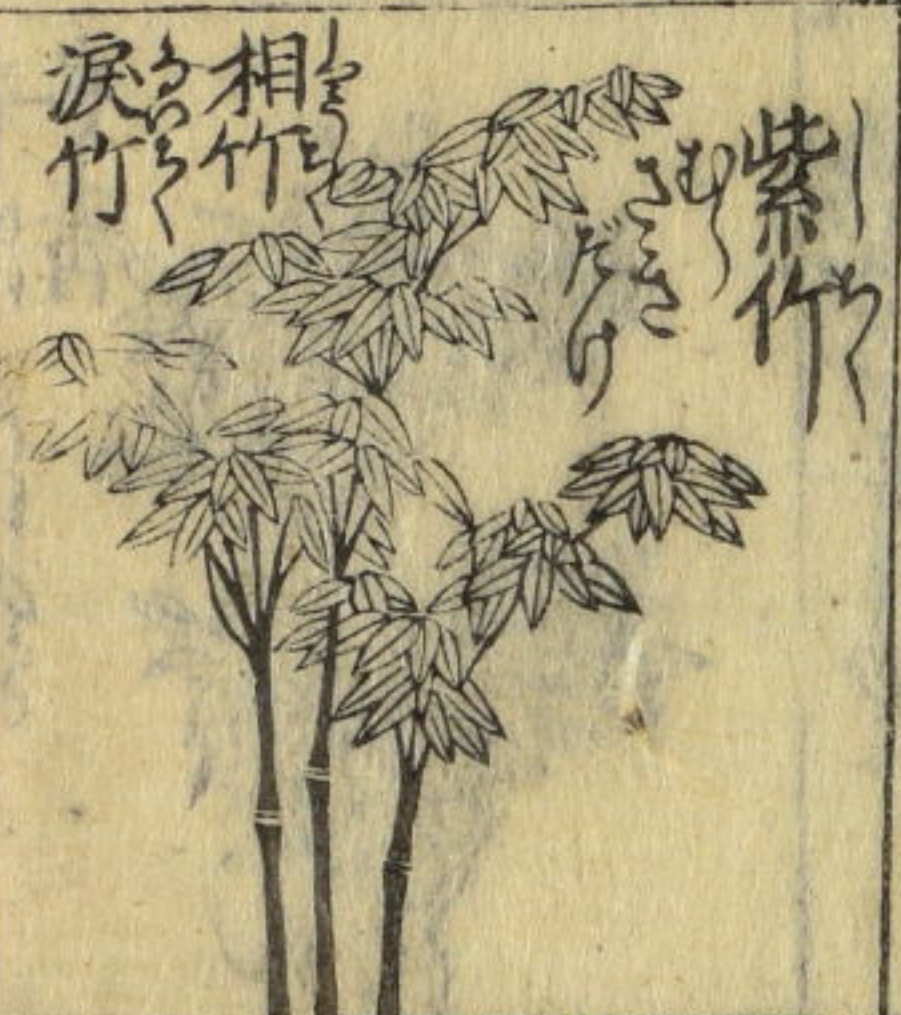 紫竹
しちく
むら
さき
だけ
相竹
しやうちく
涙竹
るいちく